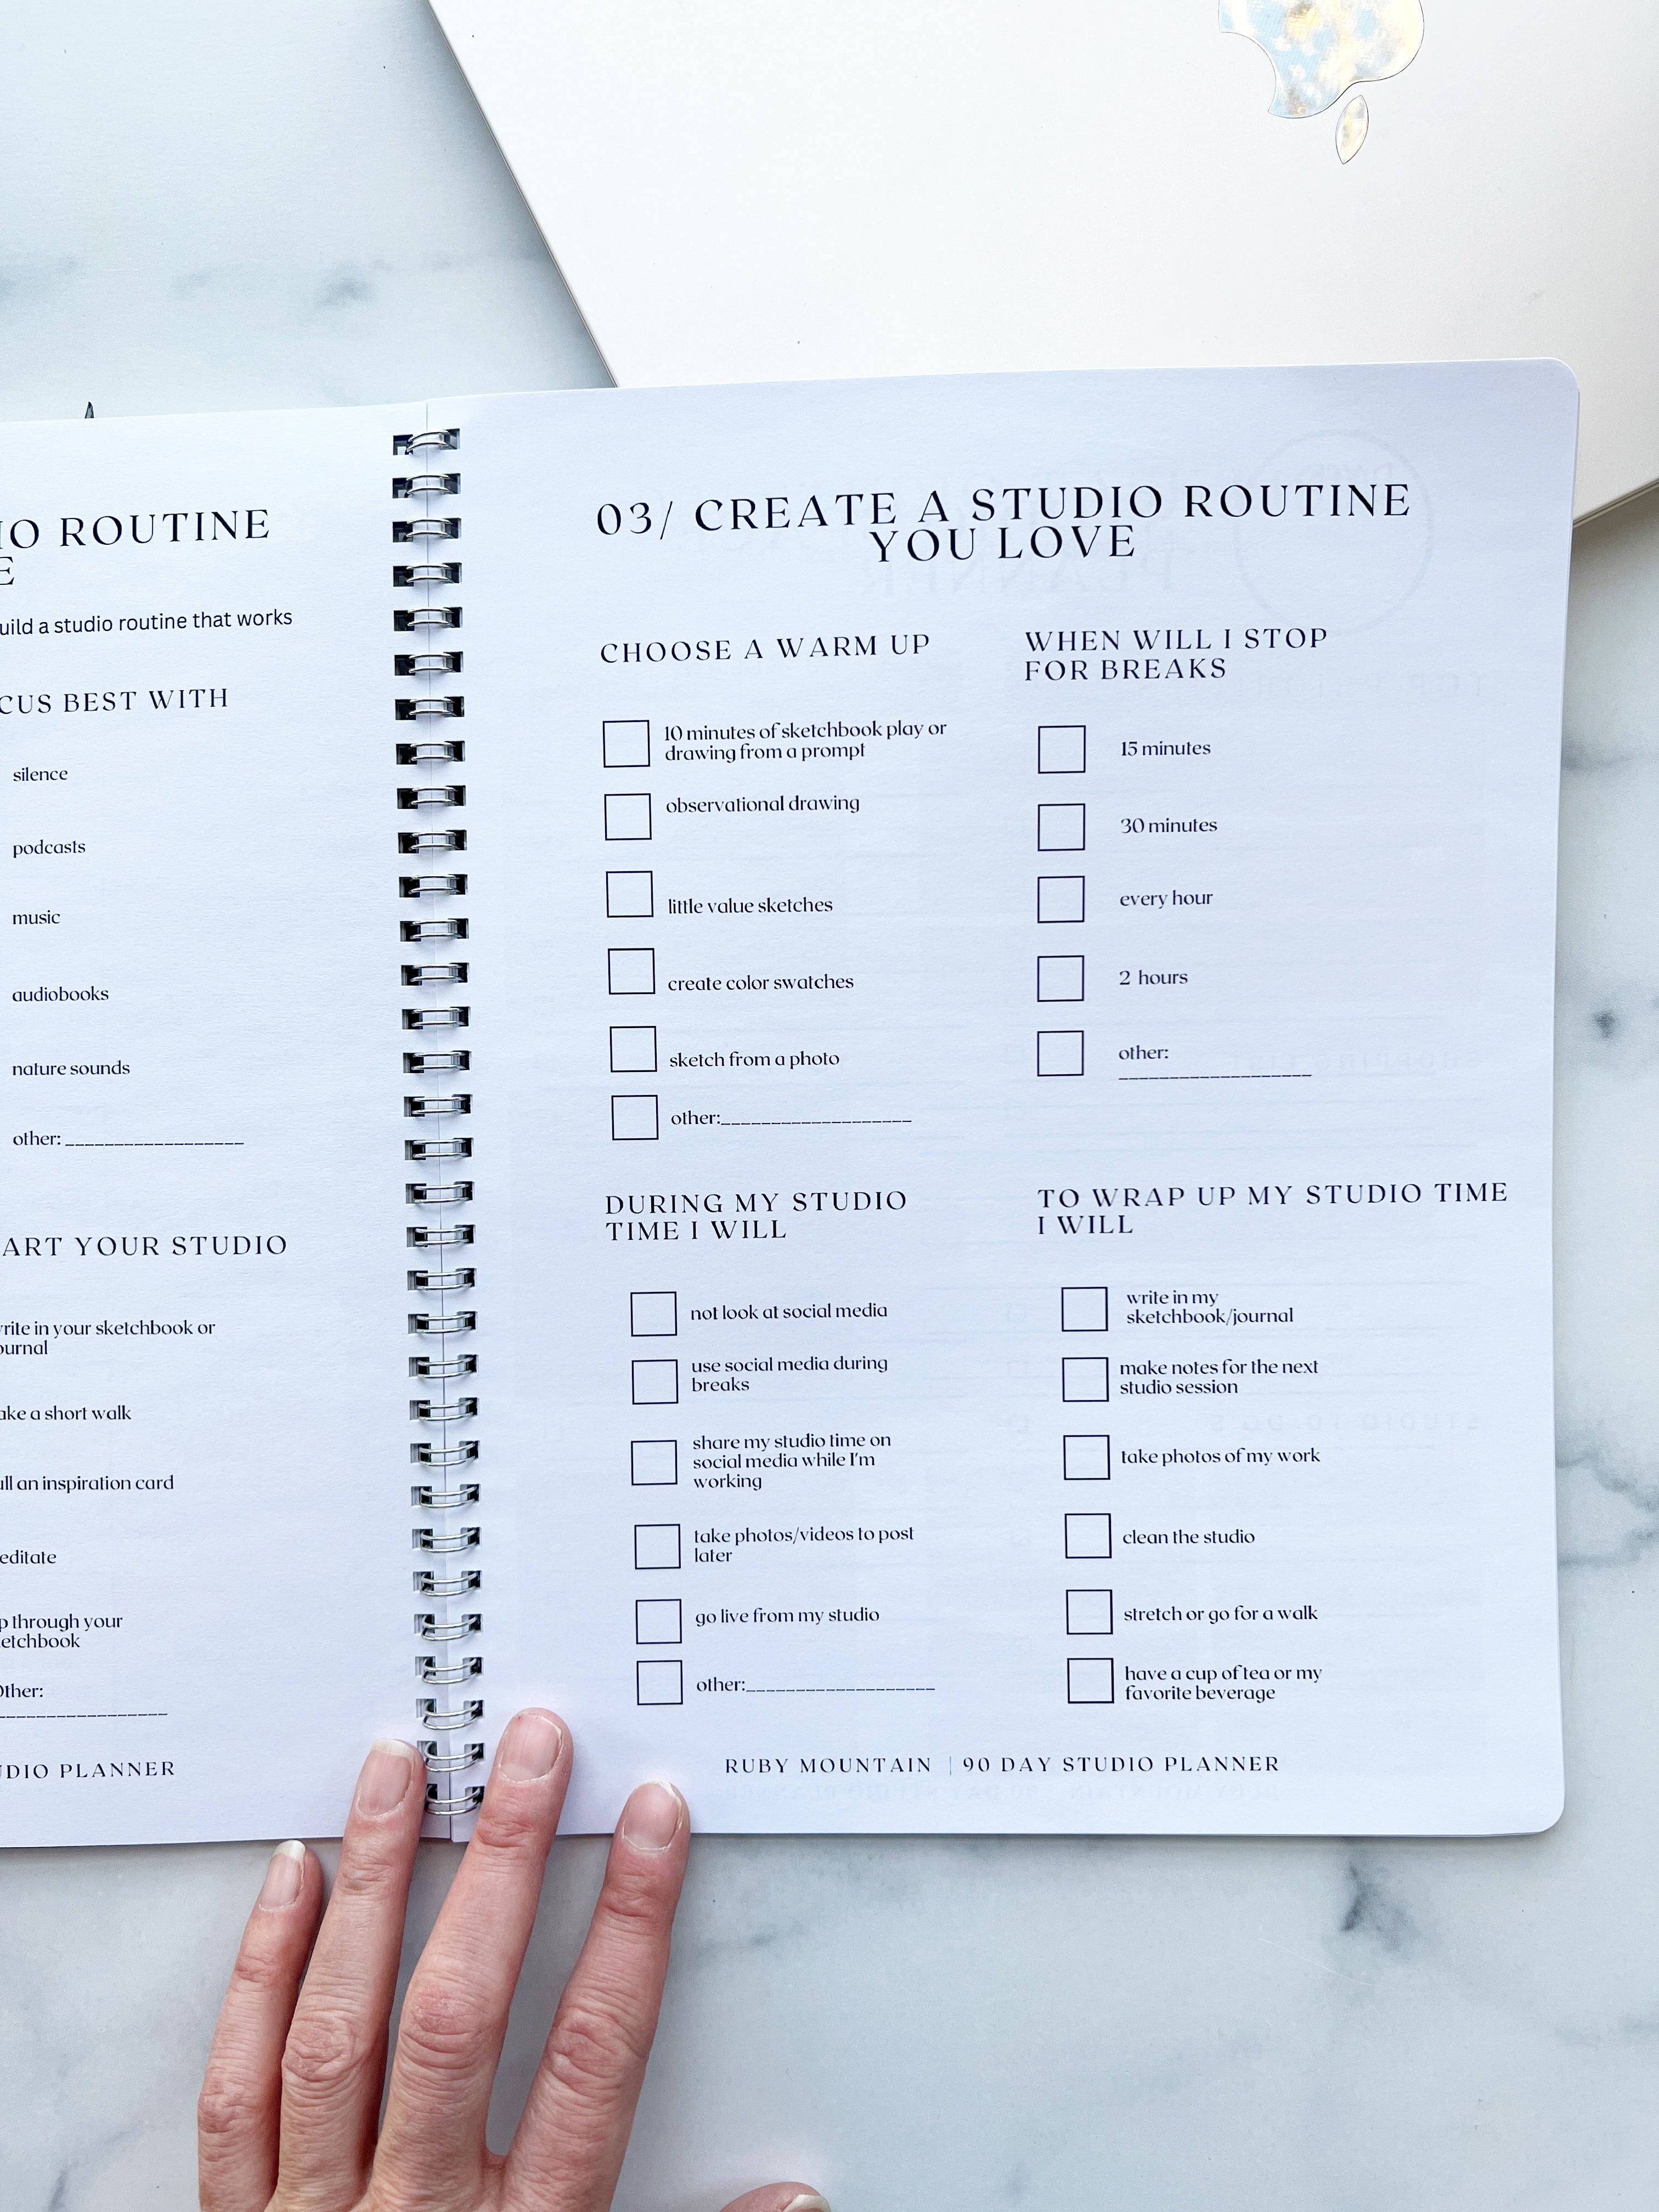 IO ROUTINE
E
uild a studio routine that works
CUS BEST WITH
silence
podcasts
music
audiobooks
nature sounds
other: __________________
ART YOUR STUDIO
rite in your sketchbook or
ournal
ake a short walk
ull an inspiration card
editate
p through your
etchbook
Other:
__________________
UDIO PLANNER
03/ CREATE A STUDIO ROUTINE
YOU LOVE
CHOOSE A WARM UP
10 minutes of sketchbook play or
drawing from a prompt
observational drawing
little value sketches
create color swatches
sketch from a photo
other:___________________
WHEN WILL I STOP
FOR BREAKS
15 minutes
30 minutes
every hour
2 hours
other:
___________________
DURING MY STUDIO
TIME I WILL
not look at social media
use social media during
breaks
share my studio time on
social media while I'm
working
take photos/videos to post
later
go live from my studio
other:___________________
TO WRAP UP MY STUDIO TIME
I WILL
write in my
sketchbook/journal
make notes for the next
studio session
take photos of my work
clean the studio
stretch or go for a walk
have a cup of tea or my
favorite beverage
RUBY MOUNTAIN | 90 DAY STUDIO PLANNER